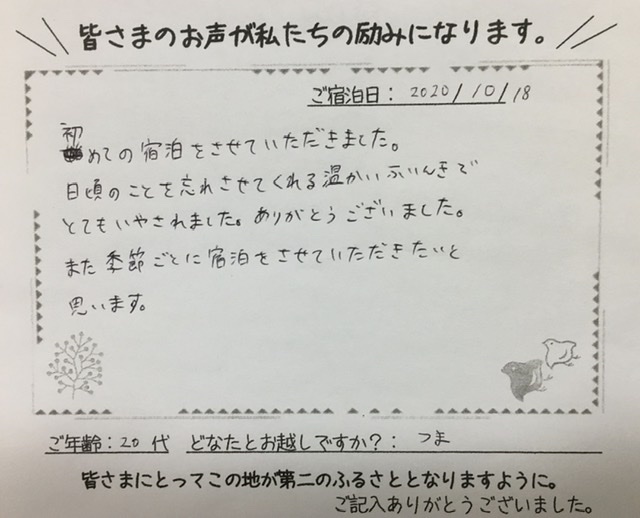 皆さまのお声が私たちの励みになります。
ご宿泊日: 2020/10/18
初めての宿泊をさせていただきました。
日頃のことを忘れさせてくれる温かいふいんきで
とてもいやされました。ありがとうございました。
また季節ごとに宿泊をさせていただきたいと
思います。
ご年齢:20代 どなたとお越しですか?: つま
皆さまにとってこの地が第二のふるさととなりますように。
ご記入ありがとうございました。